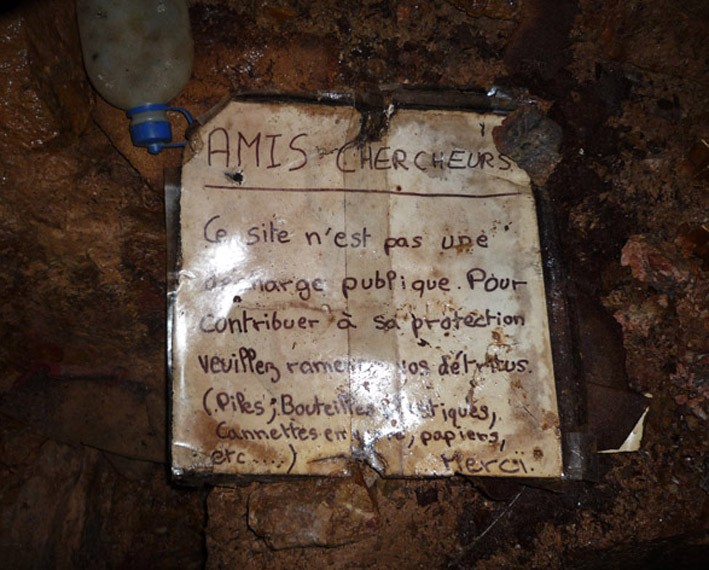 AMIS CHERCHEURS
Ce site n'est pas une
décharge publique. Pour
contribuer à sa protection
veuillez ramener vos détritus.
(Piles; Bouteilles plastiques,
Cannettes en verre, papiers,
etc....) Merci.